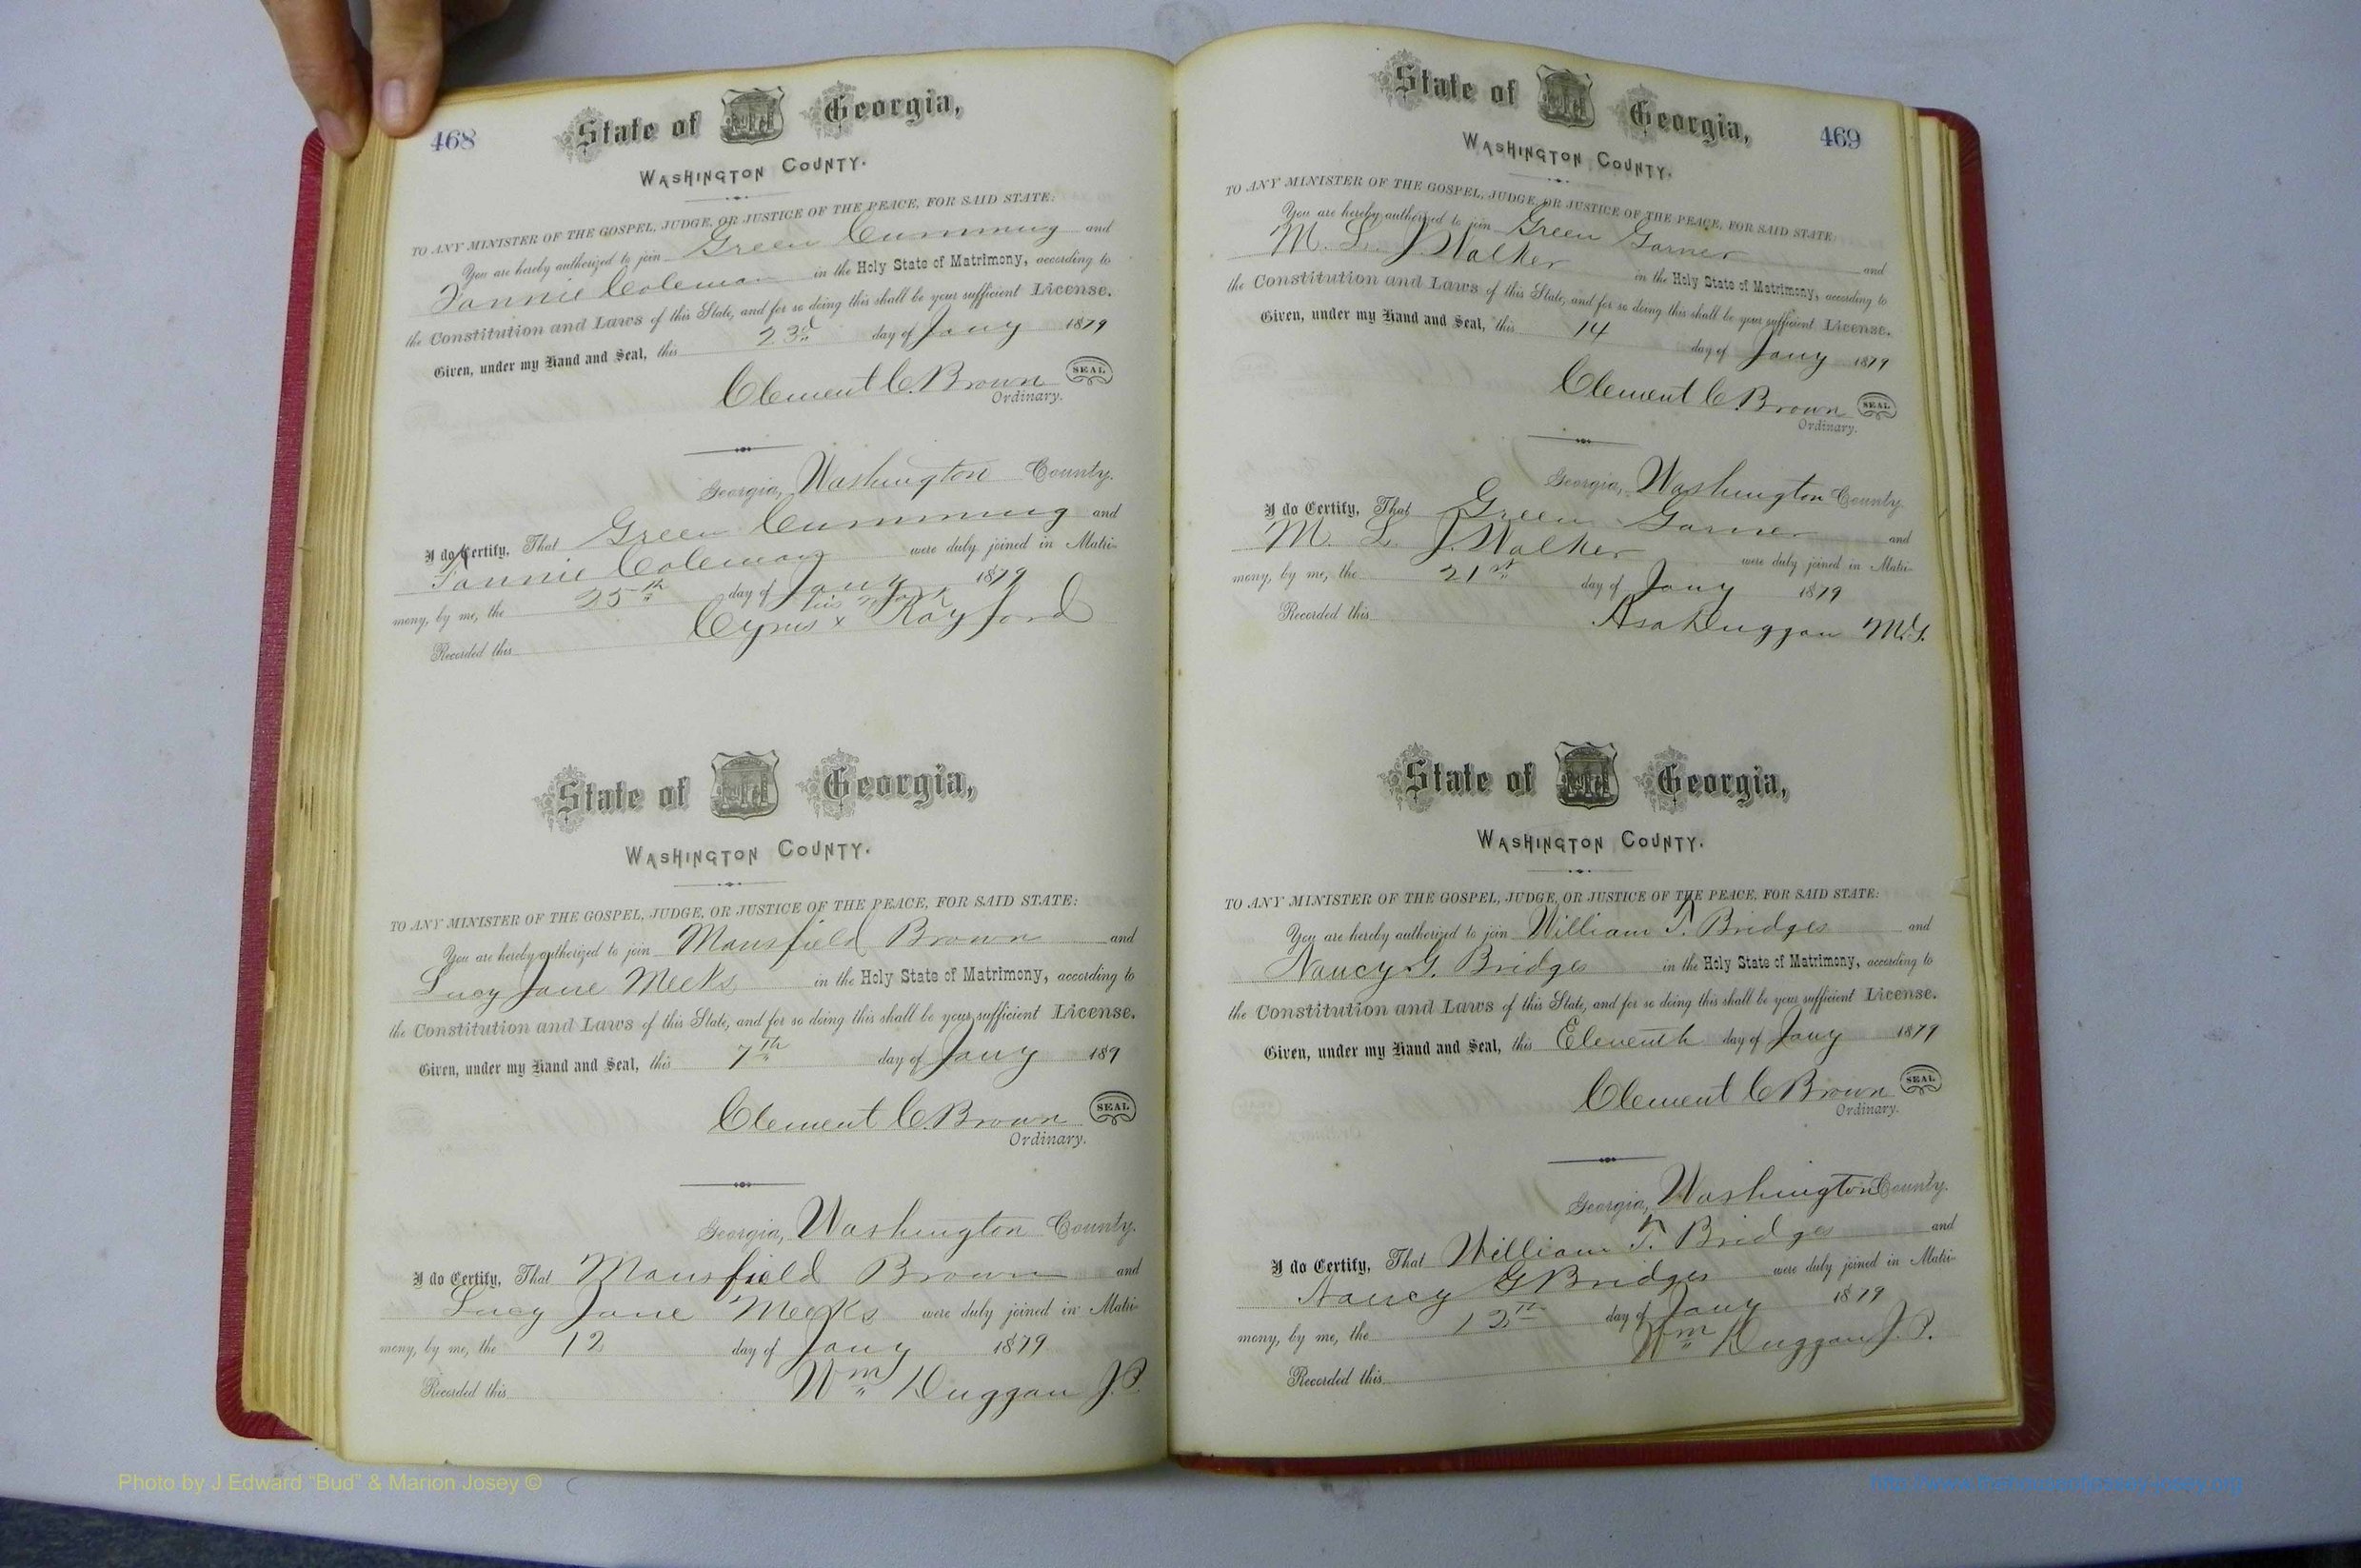 468
State of Georgia,
WASHINGTON COUNTY.
TO ANY MINISTER OF THE GOSPEL, JUDGE, OR JUSTICE OF THE PEACE, FOR SAID STATE:
You are hereby authorized to join Green Cumming and
Fannie Coleman in the Holy State of Matrimony, according to
the Constitution and Laws of this State, and for so doing this shall be your sufficient License.
Given, under my Hand and Seal, this 23d day of Jany 1879
Clement C. Brown SEAL
Ordinary.
Georgia, Washington County.
I do Certify, That Green Cumming and
Fannie Coleman were duly joined in Matri-
mony, by me, the 25th day of Jany 1879
his mark
Cyrus x Rayford
Recorded this
State of Georgia,
WASHINGTON COUNTY.
TO ANY MINISTER OF THE GOSPEL, JUDGE, OR JUSTICE OF THE PEACE, FOR SAID STATE:
You are hereby authorized to join Mansfield Brown and
Lucy Jane Meeks in the Holy State of Matrimony, according to
the Constitution and Laws of this State, and for so doing this shall be your sufficient License.
Given, under my Hand and Seal, this 7th day of Jany 189
Clement C. Brown SEAL
Ordinary.
Georgia, Washington County.
I do Certify, That Mansfield Brown and
Lucy Jane Meeks were duly joined in Matri-
mony, by me, the 12 day of Jany 1879
Wm Duggan J.P.
Recorded this
469
State of Georgia,
WASHINGTON COUNTY.
TO ANY MINISTER OF THE GOSPEL, JUDGE, OR JUSTICE OF THE PEACE, FOR SAID STATE:
You are hereby authorized to join Green Garner and
M. L. J. Walker in the Holy State of Matrimony, according to
the Constitution and Laws of this State, and for so doing this shall be your sufficient License.
Given, under my Hand and Seal, this 14 day of Jany 1879
Clement C. Brown SEAL
Ordinary.
Georgia, Washington County
I do Certify, That Green Garner and
M. L. J. Walker were duly joined in Matri-
mony, by me, the 21st day of Jany 1879
Recorded this Asa Duggan M.G.
State of Georgia,
WASHINGTON COUNTY.
TO ANY MINISTER OF THE GOSPEL, JUDGE, OR JUSTICE OF THE PEACE, FOR SAID STATE:
You are hereby authorized to join William T. Bridges and
Nancy G. Bridges in the Holy State of Matrimony, according to
the Constitution and Laws of this State, and for so doing this shall be your sufficient License.
Given, under my Hand and Seal, this Eleventh day of Jany 1879
Clement C. Brown SEAL
Ordinary.
Georgia, Washington County.
I do Certify, That William T. Bridges and
Nancy G Bridges were duly joined in Matri-
mony, by me, the 12th day of Jany 1879
Wm Duggan J.P.
Recorded this
Photo by J Edward "Bud" & Marion Josey ©